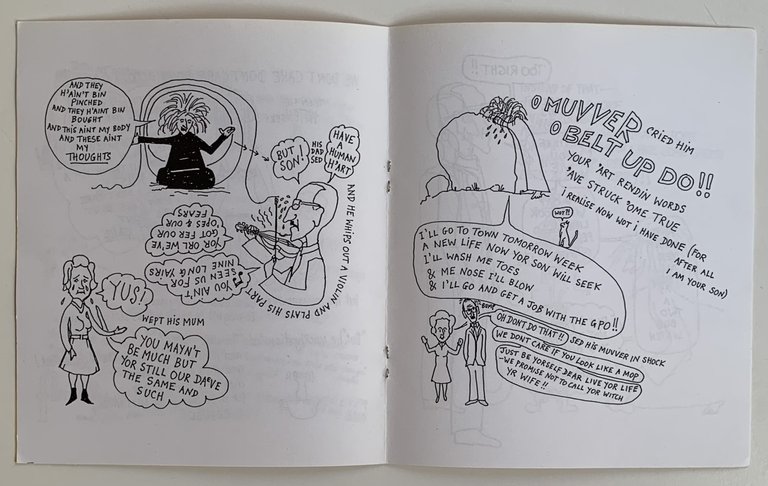 AND THEY
H'AIN'T BIN
PINCHED
AND THEY H'AINT BIN
BOUGHT
AND THIS AINT MY BODY
AND THESE AINT
MY
THOUGHTS
BUT
SON!
HIS
DAD
SED
HAVE
A
HUMAN
H'ART
AND HE WHIPS OUT A VIOLIN AND PLAYS HIS PART
YOU AIN'T
SEEN US FOR
NINE LONG YAIRS
YOR ORL WE'VE
GOT FER OUR
'OPES & OUR
FEARS
YUS!
WEPT HIS MUM
YOU MAYN'T
BE MUCH BUT
YOR STILL OUR DAVE
THE SAME AND
SUCH
TOO RIGHT!!
O MUVVER CRIED HIM
O BELT UP DO!!
YOUR 'ART RENDIN WORDS
'AVE STRUCK 'OME TRUE
i REALISE NOW WOT i HAVE DONE (FOR
AFTER ALL
i AM YOUR SON)
WOT?!
I'LL GO TO TOWN TOMORROW WEEK
A NEW LIFE NOW YOR SON WILL SEEK
I'LL WASH ME TOES
& ME NOSE I'LL BLOW
& I'LL GO AND GET A JOB WITH THE GPO!!
OH DON'T DO THAT!! SED HIS MUVVER IN SHOCK
WE DON'T CARE IF YOU LOOK LIKE A MOP
JUST BE YORSELF DEAR LIVE YOR LIFE
WE PROMISE NOT TO CALL YOR WITCH
YR WIFE!!